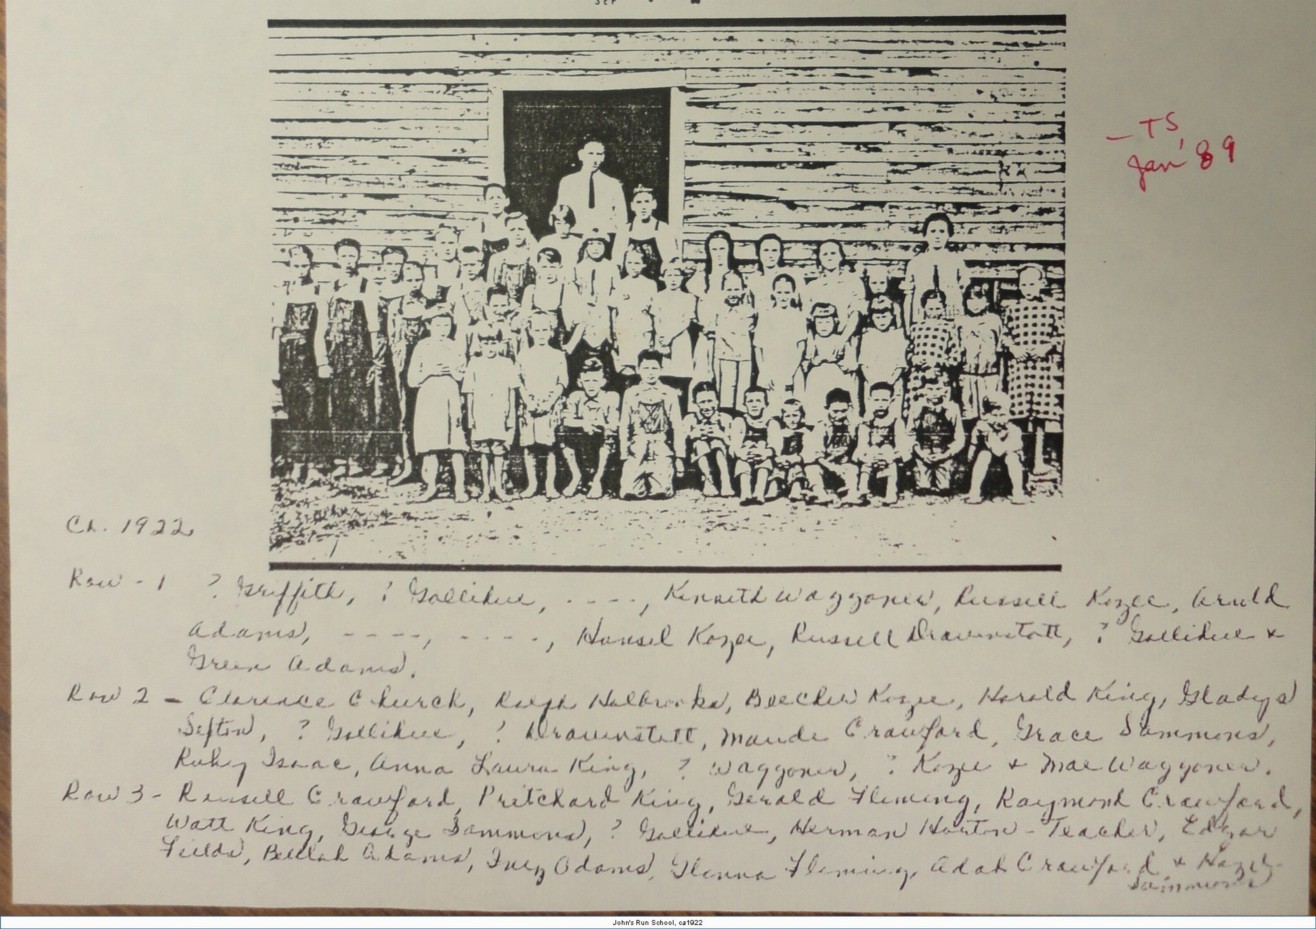 SEP
- TS
Jan '89
Ca. 1922
Row - 1 ? Griffith, ? Gollihue, - - - -, Kenneth Waggoner, Russell Kozee, Arnold
Adams, - - - -, - - - -, Hansel Kozee, Russell Drawnstott, ? Gollihue &
Green Adams.
Row 2 - Clarence Church, Ralph Holbrooks, Beecher Kozee, Harold King, Gladys
Sefton, ? Gollihue, ? Drawnstott, Maude Crawford, Grace Sammons,
Ruby Isaac, Anna Laura King, ? Waggoner, ? Kozee & Mae Waggoner.
Row 3 - Russell Crawford, Pritchard King, Gerald Fleming, Raymond Crawford,
Watt King, George Sammons, ? Gollihue, Herman Horton - Teacher, Edgar
Fields, Beulah Adams, Inez Adams, Glenna Fleming, Adah Crawford & Hazel
Sammons
John's Run School, ca1922